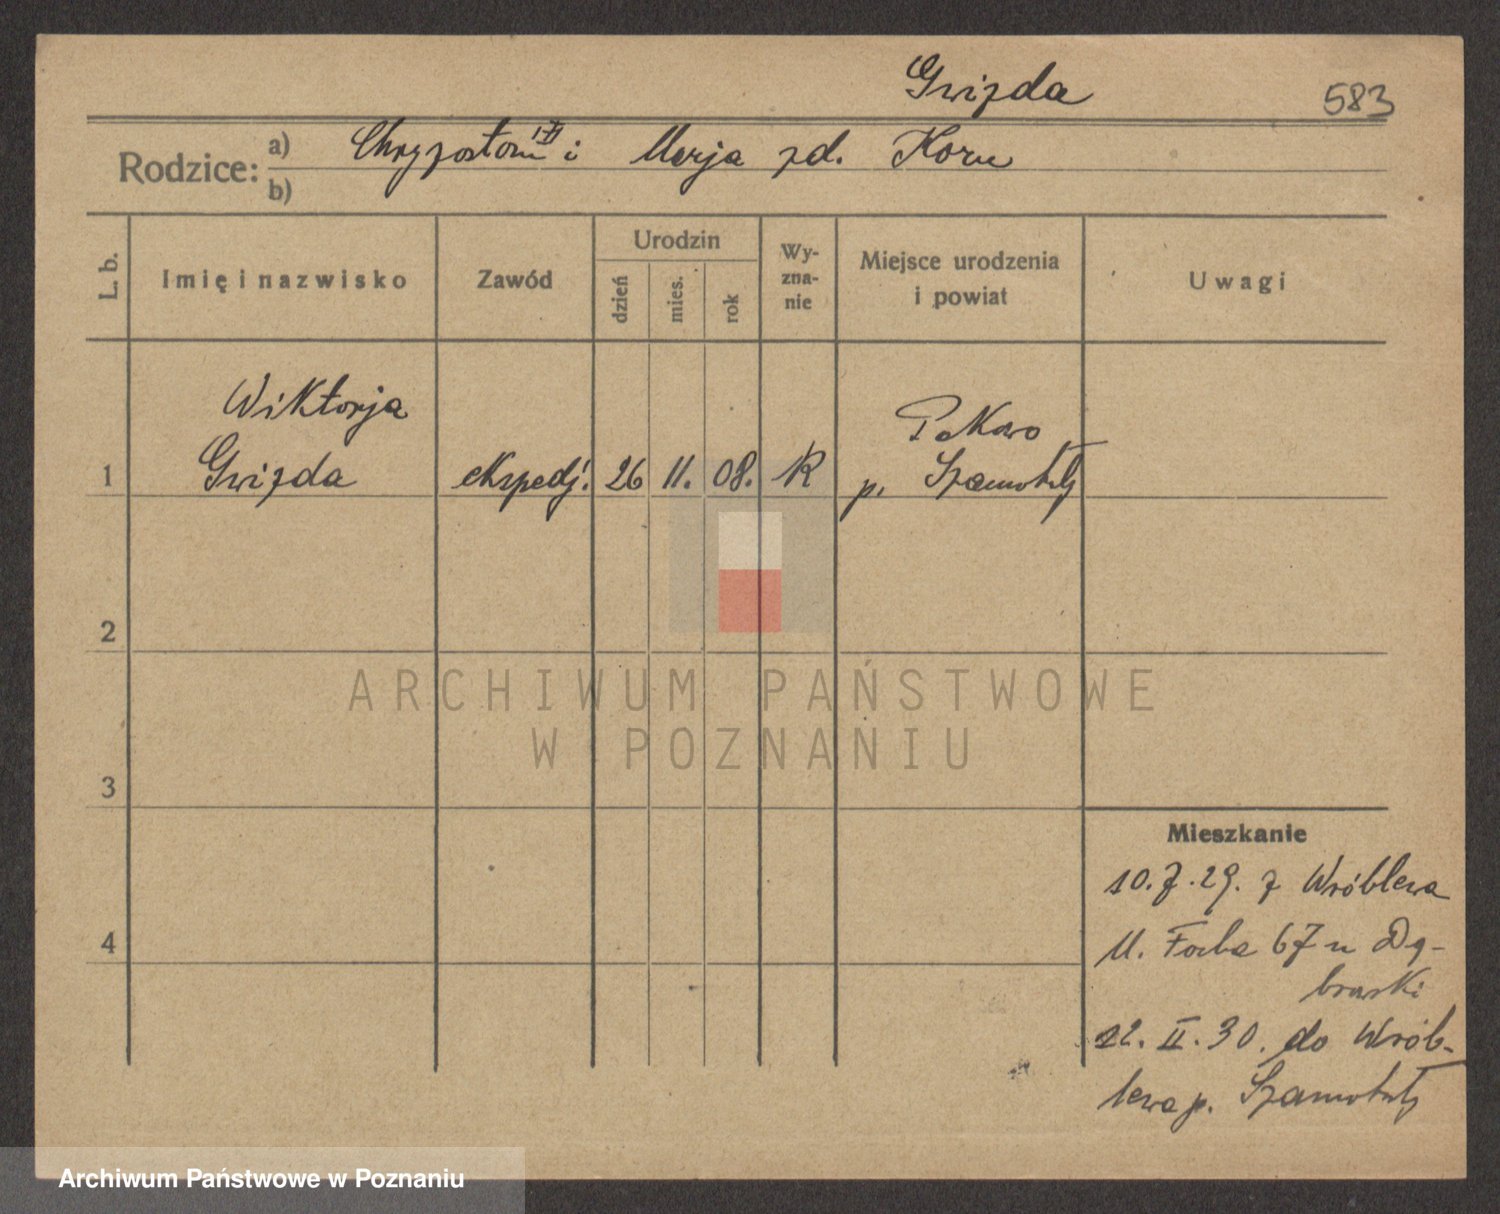 Gwizda
583
Rodzice: a) Chryzostom i Marja zd. Korn
b)
L. b. Imię i nazwisko Zawód Urodzin Wyznanie Miejsce urodzenia i powiat Uwagi
dzień mies. rok
Wiktorja Pakawo
1 Gwizda ekspedj. 26 11. 08. R p. Szamotuły
2
3
Mieszkanie
10.7.29. z Wróblewa
4
M. Focha 67 u Dą-
browski
22. II. 30. do Wrób-
lewa p. Szamotuły
ARCHIWUM PAŃSTWOWE
W POZNANIU
Archiwum Państwowe w Poznaniu